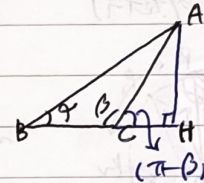 A
α β
B C H
(π-β)